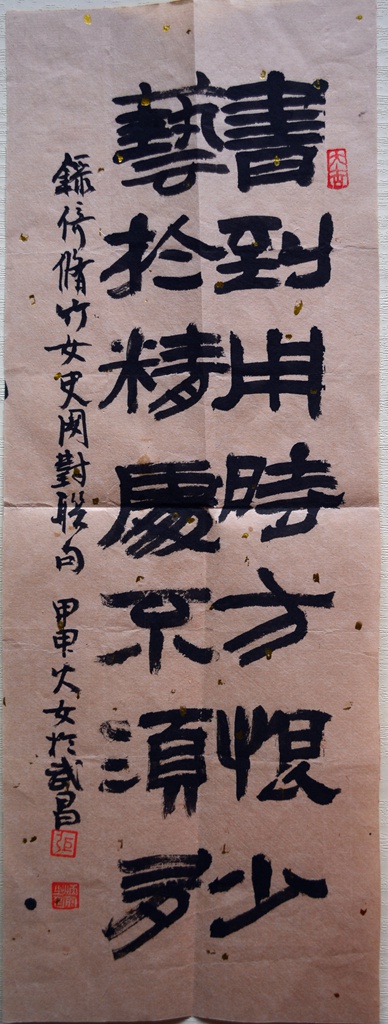 書到用時方恨少
藝於精處不須多
錄倚脩竹女史閣對聯句 甲申火女於武昌